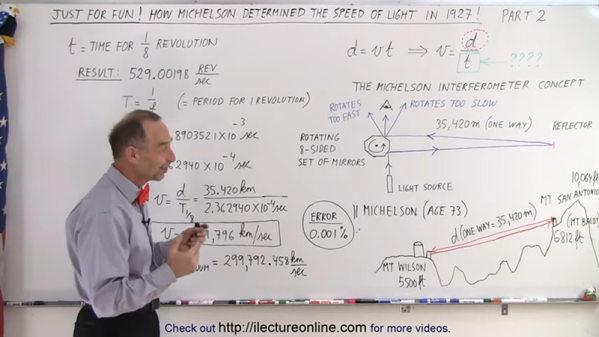 JUST FOR FUN! HOW MICHELSON DETERMINED THE SPEED OF LIGHT IN 1927! PART 2
t = TIME FOR 1/8 REVOLUTION
RESULT: 529.00198 REV/SEC
T = 1/f (= PERIOD FOR 1 REVOLUTION)
8903521 X 10^-3 sec
62940 X 10^-4 sec
v = d/T_1/8 = 35.420 km / 2.362940 X 10^-4 sec
,796 km/sec
= 299,792.458 km/sec
ERROR
0.001%
d = vt ⇒ v = d/t ????
THE MICHELSON INTERFEROMETER CONCEPT
ROTATES TOO FAST
ROTATES TOO SLOW
35,420 m (ONE WAY)
REFLECTOR
ROTATING
8-SIDED
SET OF MIRRORS
LIGHT SOURCE
MICHELSON (AGE 73)
10,064 ft
MT SAN ANTONIO
(MT BALDY)
6812 ft
d (ONE WAY = 35,420 m)
MT WILSON
5500 ft
Check out http://ilectureonline.com for more videos.